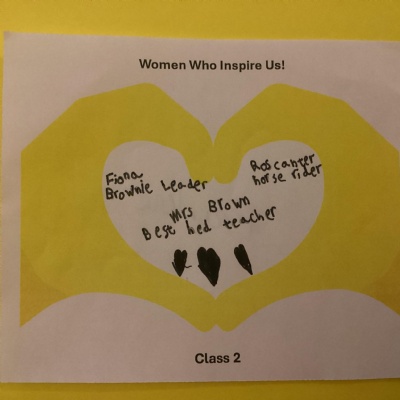 Women Who Inspire Us!
Fiona
Brownie Leader
Ros canter
horse rider
Mrs Brown
Best hed teacher
Class 2